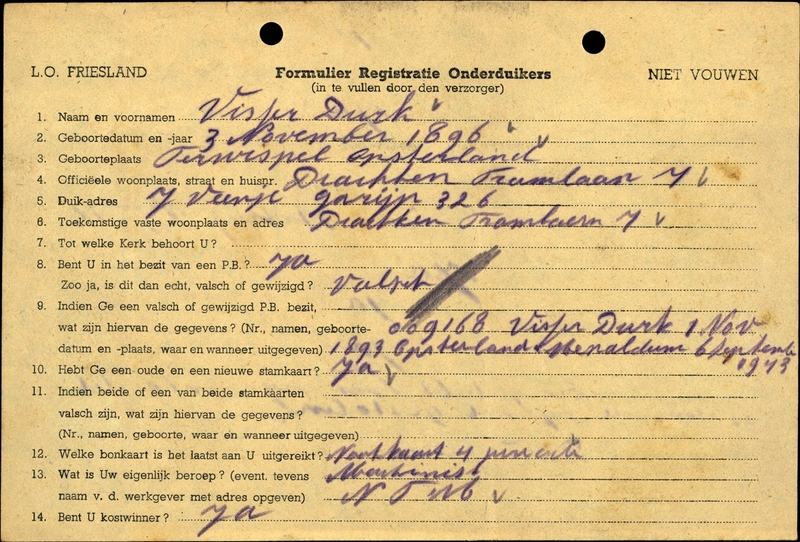 L.O. FRIESLAND
Formulier Registratie Onderduikers
NIET VOUWEN
(in te vullen door den verzorger)
1. Naam en voornamen Visser Durk
2. Geboortedatum en -jaar 3 November 1896
3. Geboorteplaats Terwispel Opsterland
4. Officiëele woonplaats, straat en huisnr. Drachten Tramlaan 7
5. Duik-adres 326
6. Toekomstige vaste woonplaats en adres Drachten Tramlaan 7
7. Tot welke Kerk behoort U?
8. Bent U in het bezit van een P.B.? ya
Zoo ja, is dit dan echt, valsch of gewijzigd? Valsch
9. Indien Ge een valsch of gewijzigd P.B. bezit,
wat zijn hiervan de gegevens? (Nr., namen, geboorte- 009168 Visser Durk 1 Nov
datum en -plaats, waar en wanneer uitgegeven) 1893 Opsterland Menaldum 6 September
10. Hebt Ge een oude en een nieuwe stamkaart? ya 1943
11. Indien beide of een van beide stamkaarten
valsch zijn, wat zijn hiervan de gegevens?
(Nr., namen, geboorte, waar en wanneer uitgegeven)
12. Welke bonkaart is het laatst aan U uitgereikt? Noodkaart 4 periode
13. Wat is Uw eigenlijk beroep? (event. tevens Machinist
naam v. d. werkgever met adres opgeven) N T M
14. Bent U kostwinner? ya